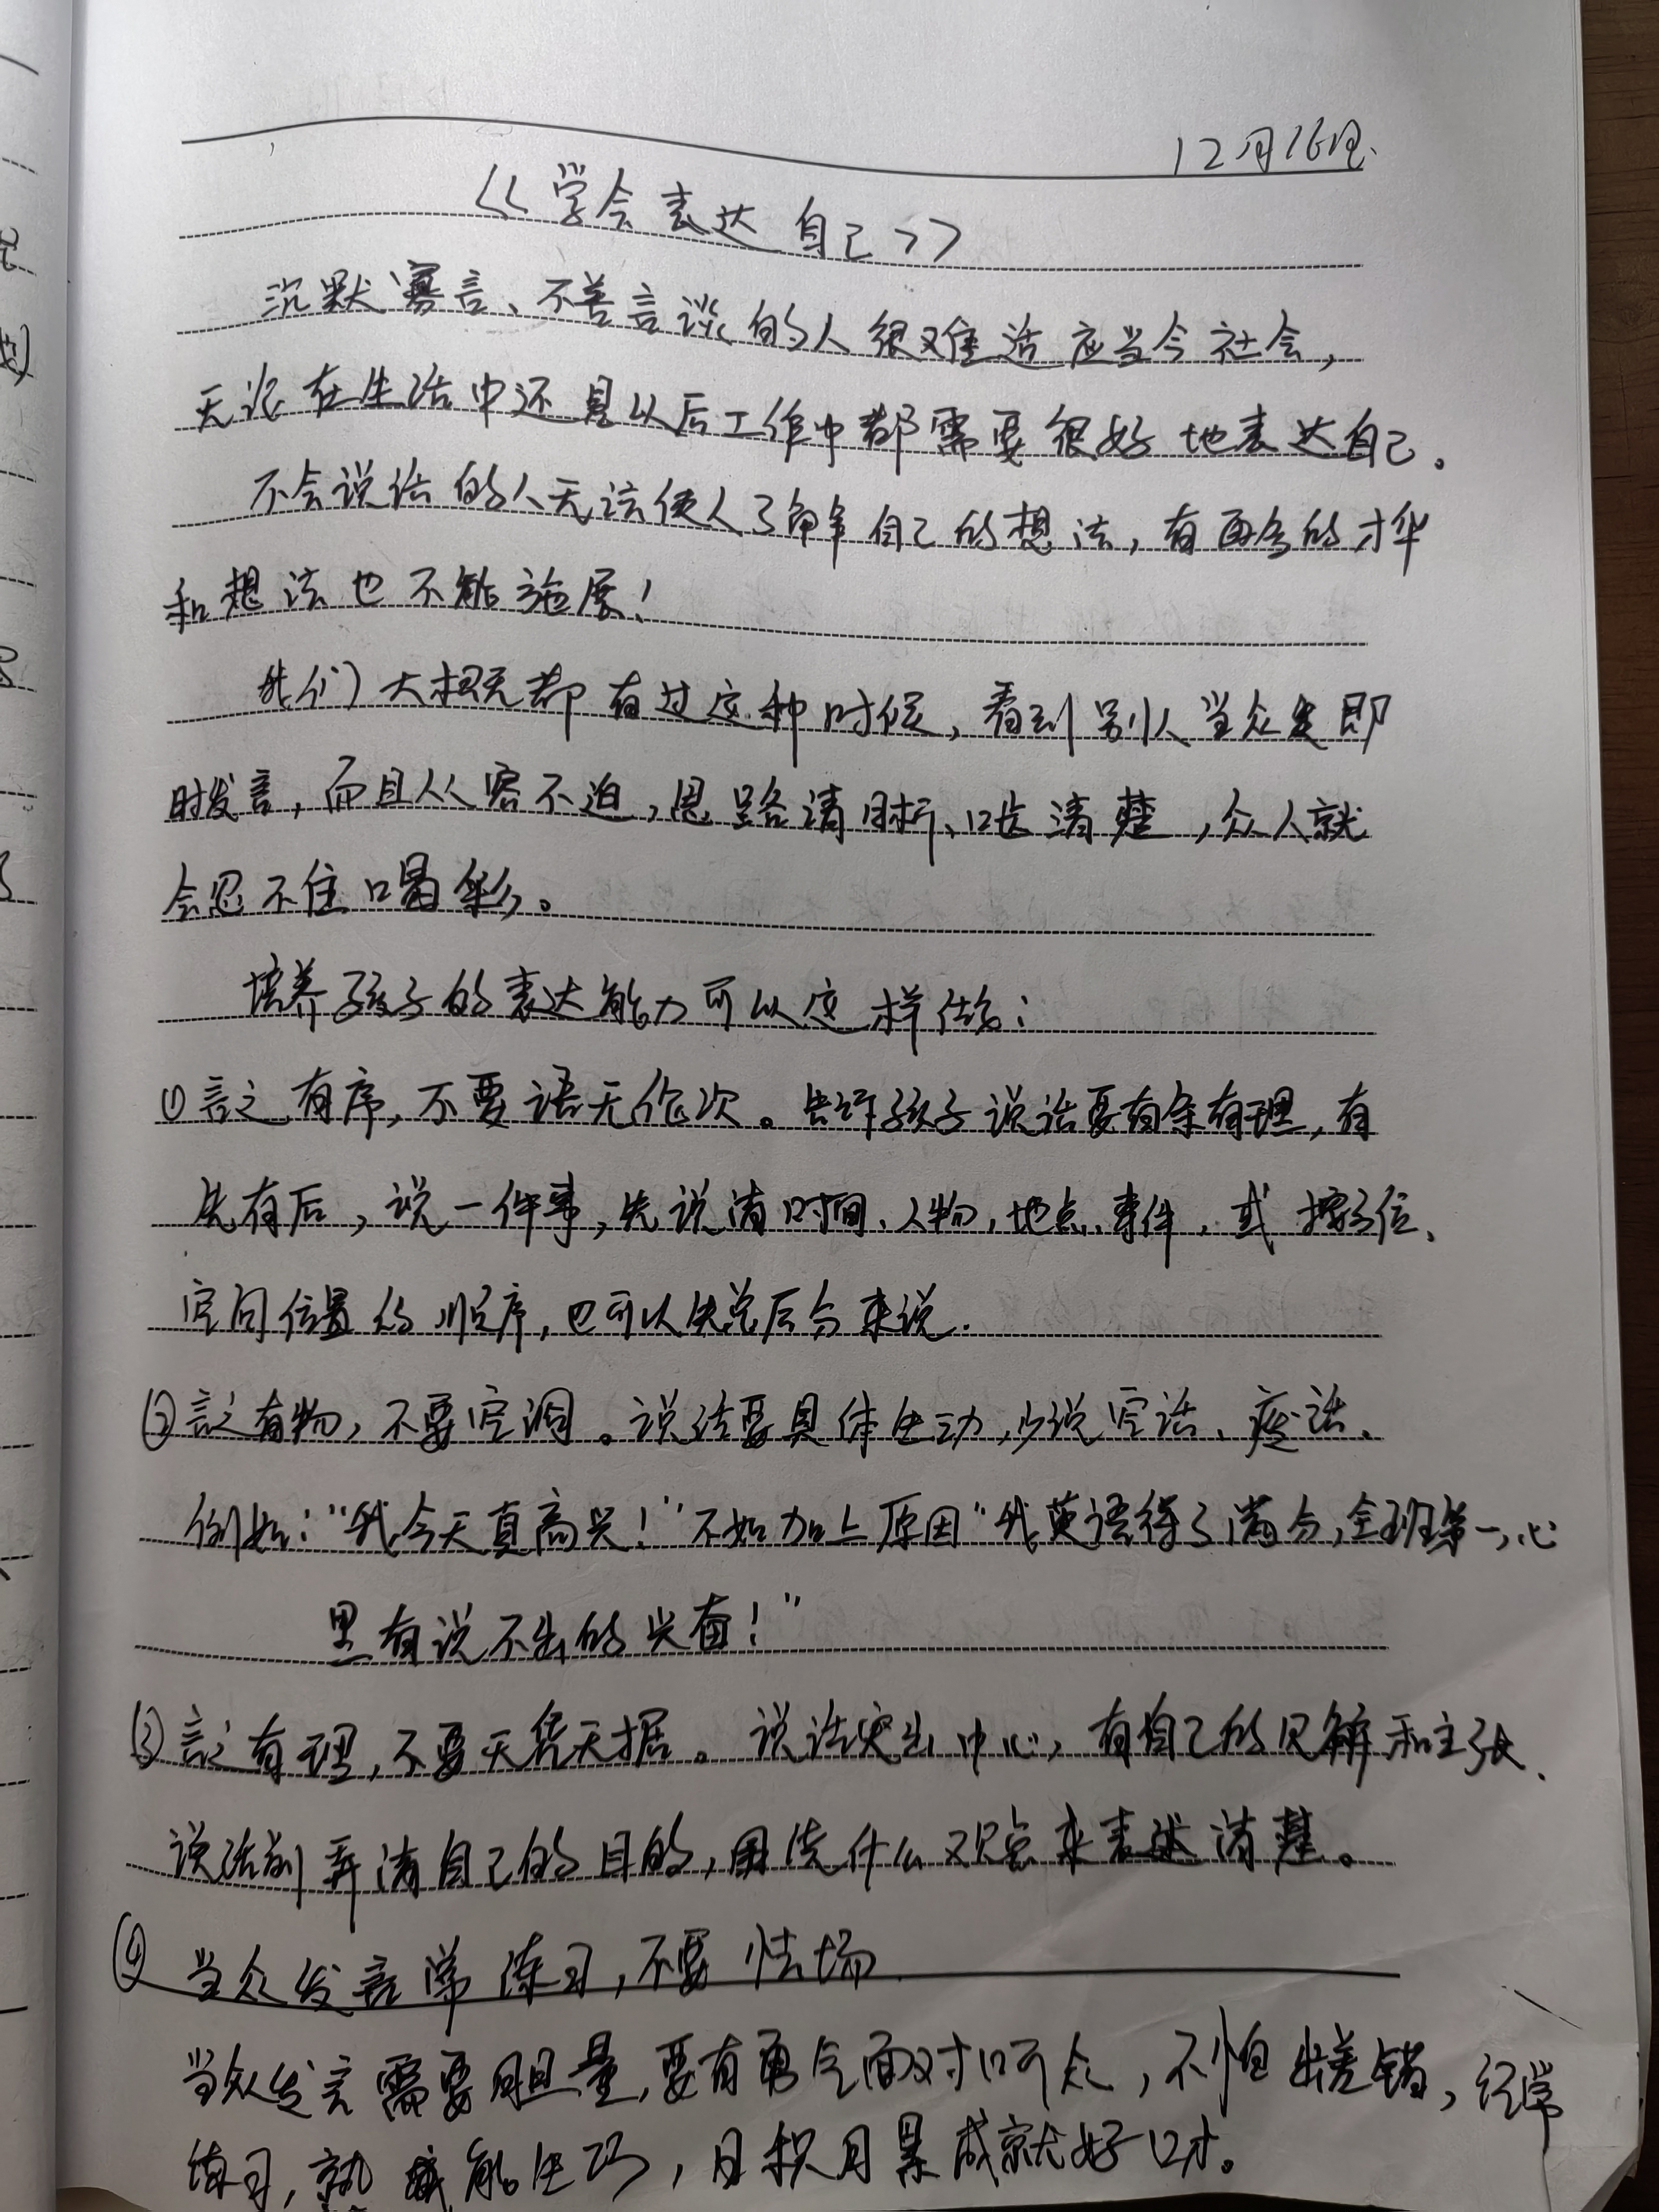 12月16日.
<<学会表达自己>>
沉默寡言、不善言谈的人很难适应当今社会,
无论在生活中还是以后工作中都需要很好地表达自己。
不会说话的人无法使人了解自己的想法,有再多的才华
和想法也不能施展!
我们大概都有过这种时候,看到别人当众即
时发言,而且从容不迫,思路清晰、口齿清楚,众人就
会忍不住喝彩。
培养孩子的表达能力可以这样做:
①言之有序,不要语无伦次。告诉孩子说话要有条有理,有
先有后,说一件事,先说清时间、人物,地点、事件,或按方位、
空间位置的顺序,也可以先总后分来说.
②言之有物,不要空洞。说话要具体生动,少说空话、废话、
例如:“我今天真高兴!”不如加上原因“我英语得了满分,全班第一,心
里有说不出的兴奋!”
③言之有理,不要无凭无据。说话突出中心,有自己的见解和主张、
说话前弄清自己的目的,用什么观点来表述清楚。
④当众发言常练习,不要怯场
当众发言需要胆量,要有勇气面对听众,不怕出差错,经常
练习,熟能生巧,日积月累成就好口才。